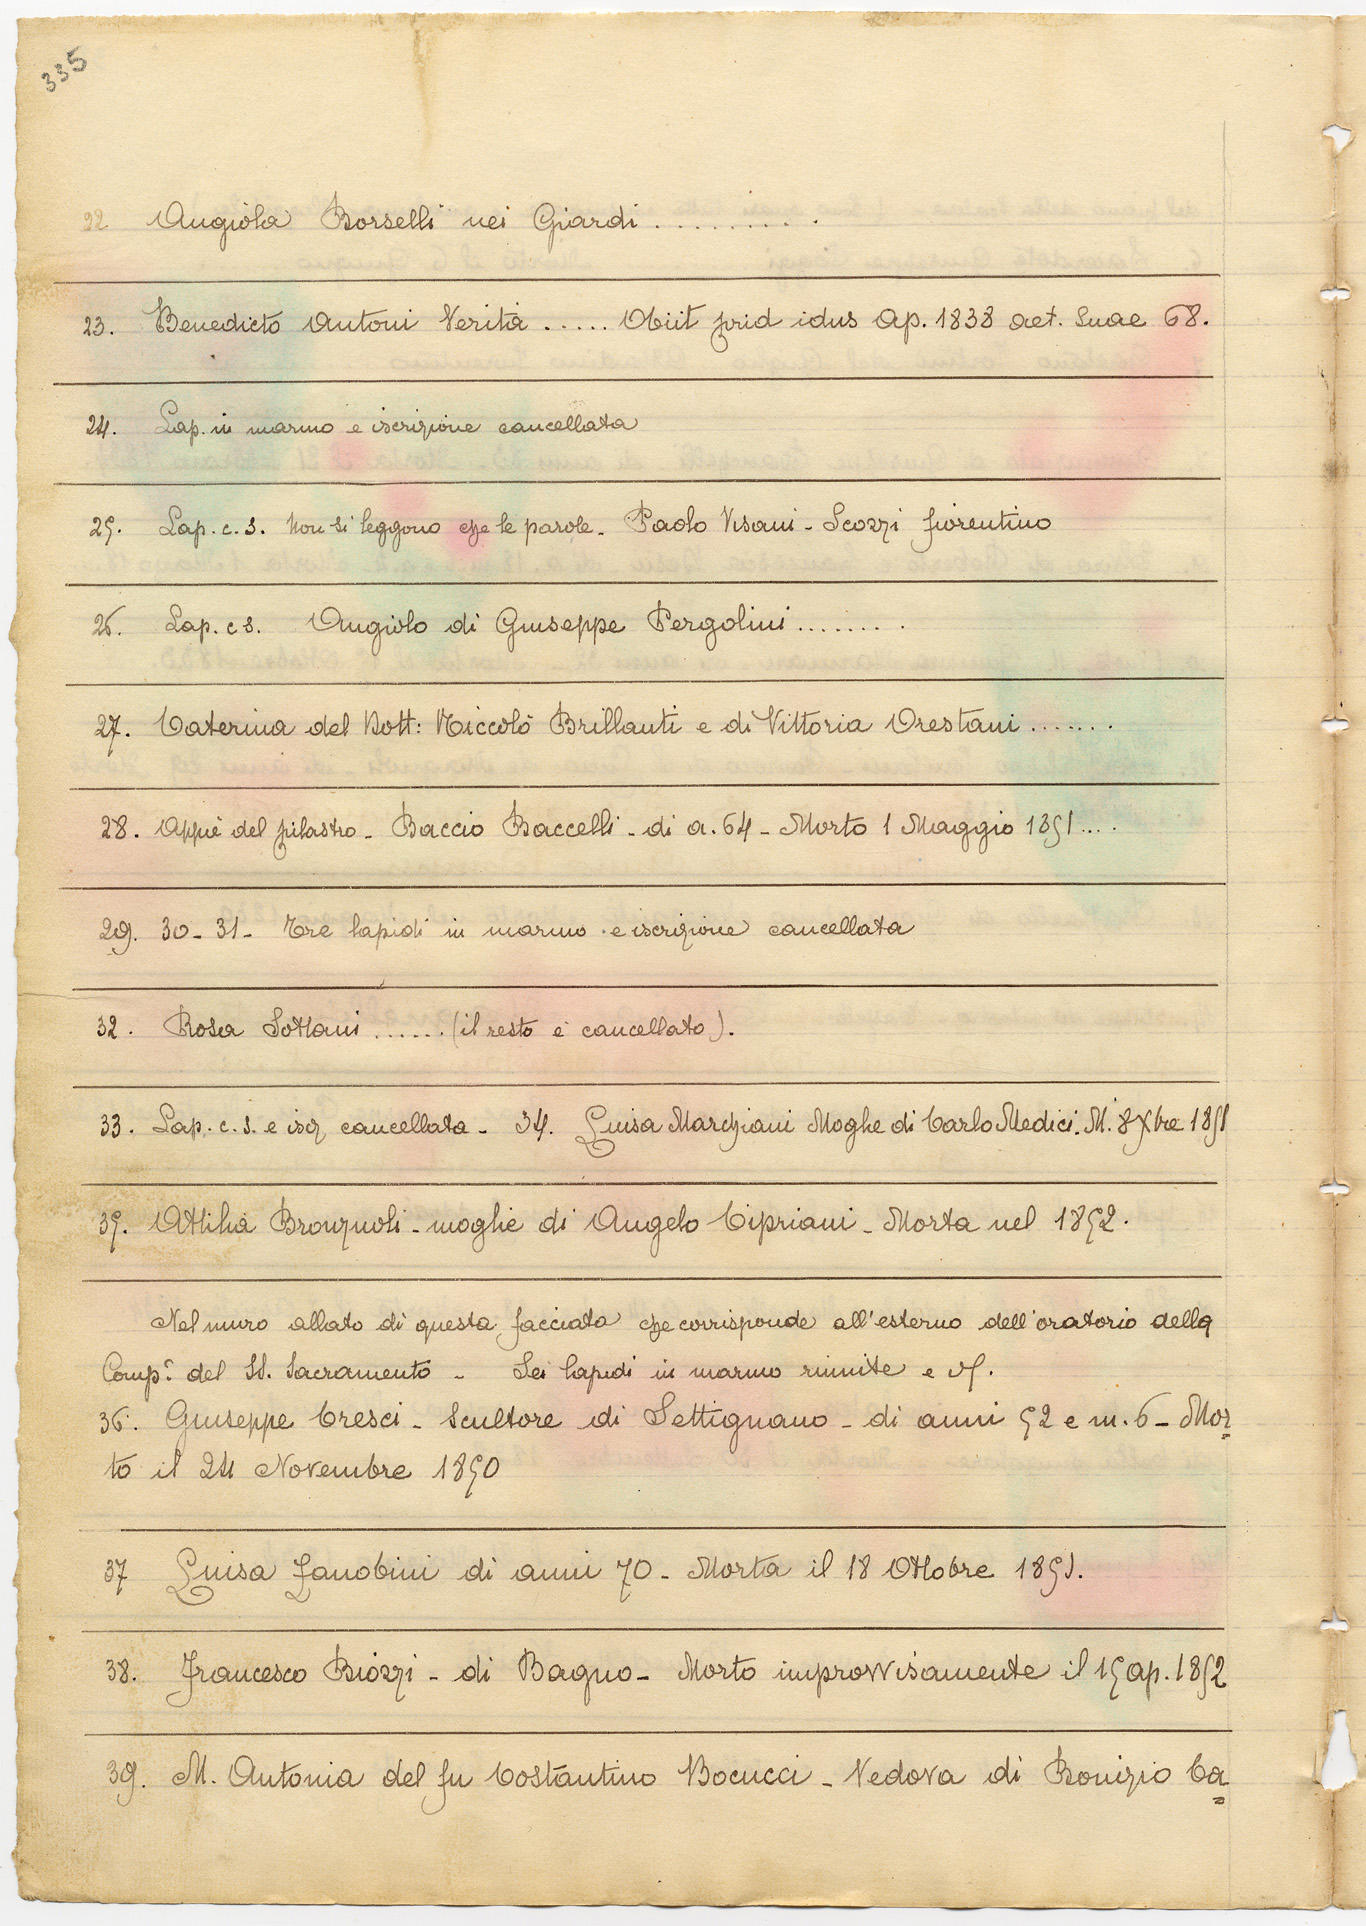 335
22 Angiola Borselli nei Giardi .........
23. Benedicto Antoni Verità ..... Obiit prid idus Ap. 1838 aet. Suae 68.
24. Lap. in marmo e iscrizione cancellata
25. Lap. c. s. Non si leggono che le parole - Paolo Visani - Scozzi fiorentino
26. Lap. c s. Angiolo di Giuseppe Pergolini ........
27. Caterina del Dott: Niccolò Brillanti e di Vittoria Orestani .......
28. Appiè del pilastro - Baccio Baccelli - di a. 64 - Morto 1 Maggio 1851....
29. 30 - 31 - Tre lapidi in marmo e iscrizione cancellata
32. Rosa Sottani ...... (il resto è cancellato).
33. Lap. c. s. e iscz cancellata - 34. Luisa Marchiani Moghe di Carlo Medici. M. 8 Xbre 1851
35. Attilia Bronzuoli - moglie di Angelo Cipriani - Morta nel 1852.
Nel muro allato di questa facciata che corrisponde all'esterno dell'oratorio della
Comp.ª del SS. Sacramento - Sei lapidi in marmo riunite e
36. Giuseppe Cresci - Scultore di Settignano - di anni 52 e m. 6 - Mor=
to il 24 Novembre 1850
37 Luisa Zanobini di anni 70 - Morta il 18 Ottobre 1851.
38. Francesco Biozzi - di Bagno - Morto improvvisamente il 15 ap. 1852
39. M. Antonia del fu Costantino Bocucci - Vedova di Bonizio Ca=